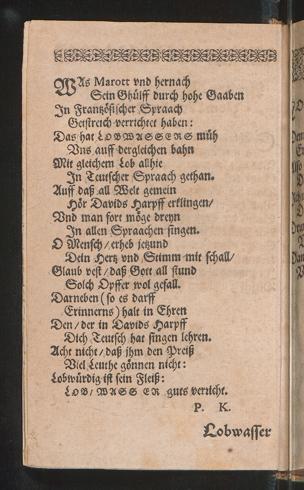 WAs Marott vnd hernach
Sein Ghülff durch hohe Gaaben
In Frantzösischer Spraach
Geistreich verrichtet haben:
Das hat LOBWASSERS müh
Vns auff dergleichen bahn
Mit gleichem Lob allhie
In Teutscher Spraach gethan.
Auff daß all Welt gemein
Hör Davids Harpff erklingen/
Vnd man fort möge dreyn
In allen Spraachen singen.
O Mensch/ erheb jetzund
Dein Hertz vnd Stimm mit schall/
Glaub vest/ daß Gott all stund
Solch Opffer wol gefall.
Darneben (so es darff
Erinnerns) halt in Ehren
Den/ der in Davids Harpff
Dich Teutsch hat singen lehren.
Acht nicht/ daß jhm den Preiß
Viel Leuthe gönnen nicht:
Lobwürdig ist sein Fleiß:
LOB/ WASS ER guts verricht.
P. K.
Lobwasser